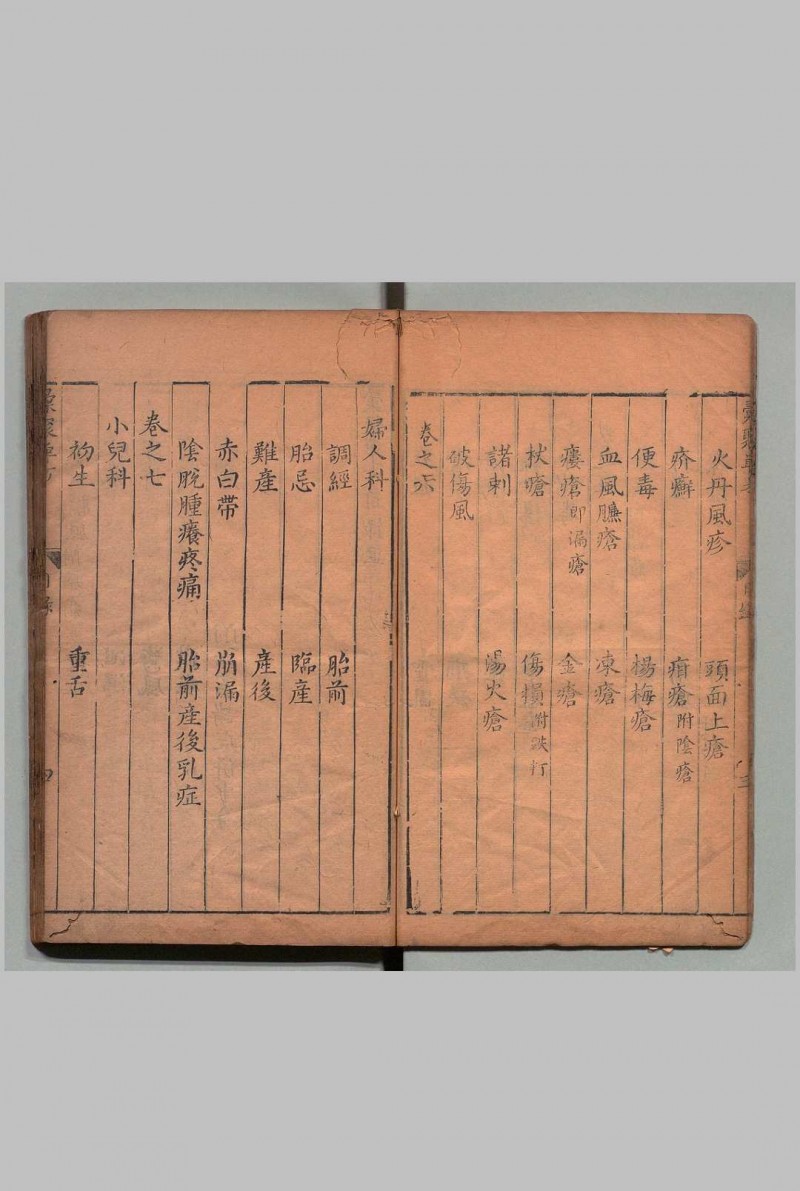 火丹風疹　頭面上瘡
疥癬　疳瘡附陰瘡
便毒　楊梅瘡
血風臁瘡　凍瘡
瘻瘡即漏瘡　金瘡
杖瘡　傷損附跌打
諸刺　湯火瘡
破傷風
卷之六
婦人科
調經　胎前
胎忌　臨產
難產　產後
赤白帶　崩漏
陰脫腫癢疼痛　胎前產後乳症
卷之七
小兒科
初生　重舌
目錄　四